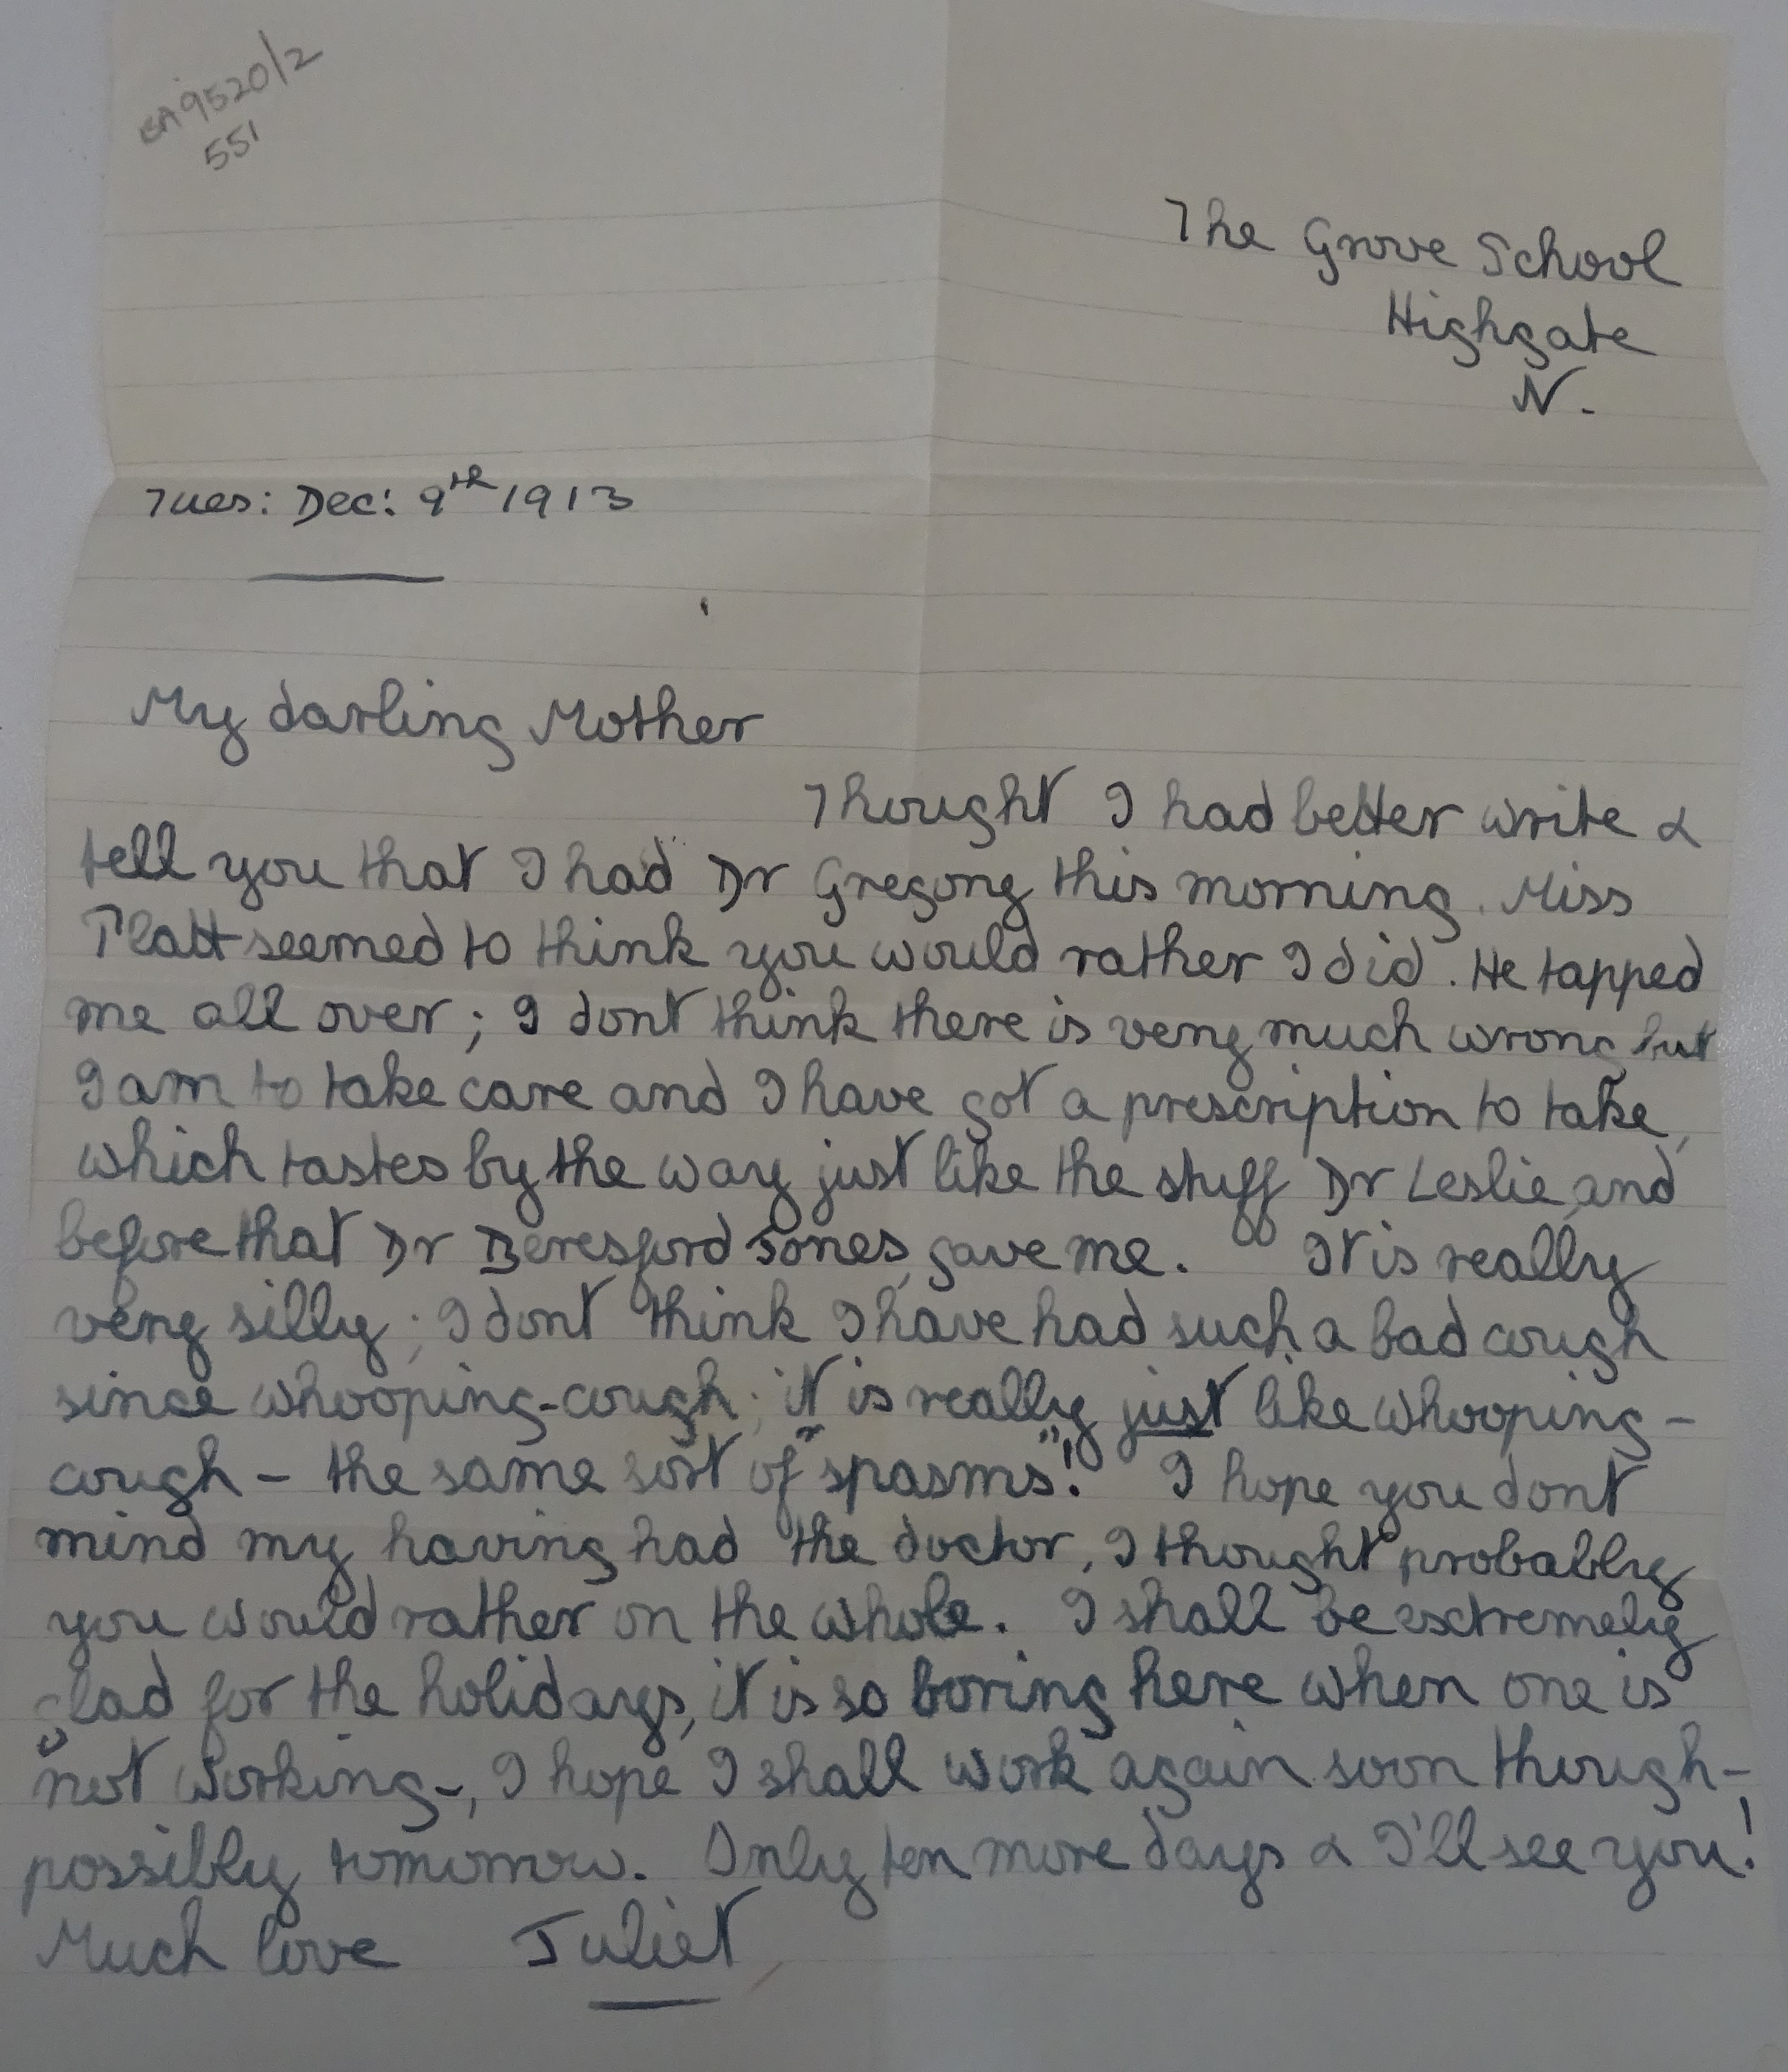 EA9520/2
551
The Grove School
Highgate
N.
Tues: Dec: 9th 1913
My darling Mother
Thought I had better write &
tell you that I had Dr Gregory this morning. Miss
Platt seemed to think you would rather I did. He tapped
me all over; I dont think there is very much wrong but
I am to take care and I have got a prescription to take,
which tastes by the way just like the stuff Dr Leslie, and
before that Dr Beresford Jones, gave me. It is really
very silly; I dont think I have had such a bad cough
since whooping-cough; it is really just like whooping-
cough - the same sort of "spasms"! I hope you dont
mind my having had the doctor, I thought probably
you would rather on the whole. I shall be extremely
glad for the holidays, it is so boring here when one is
not working-, I hope I shall work again soon though-
possibly tomorrow. Only ten more days & I'll see you!
Much love Juliet